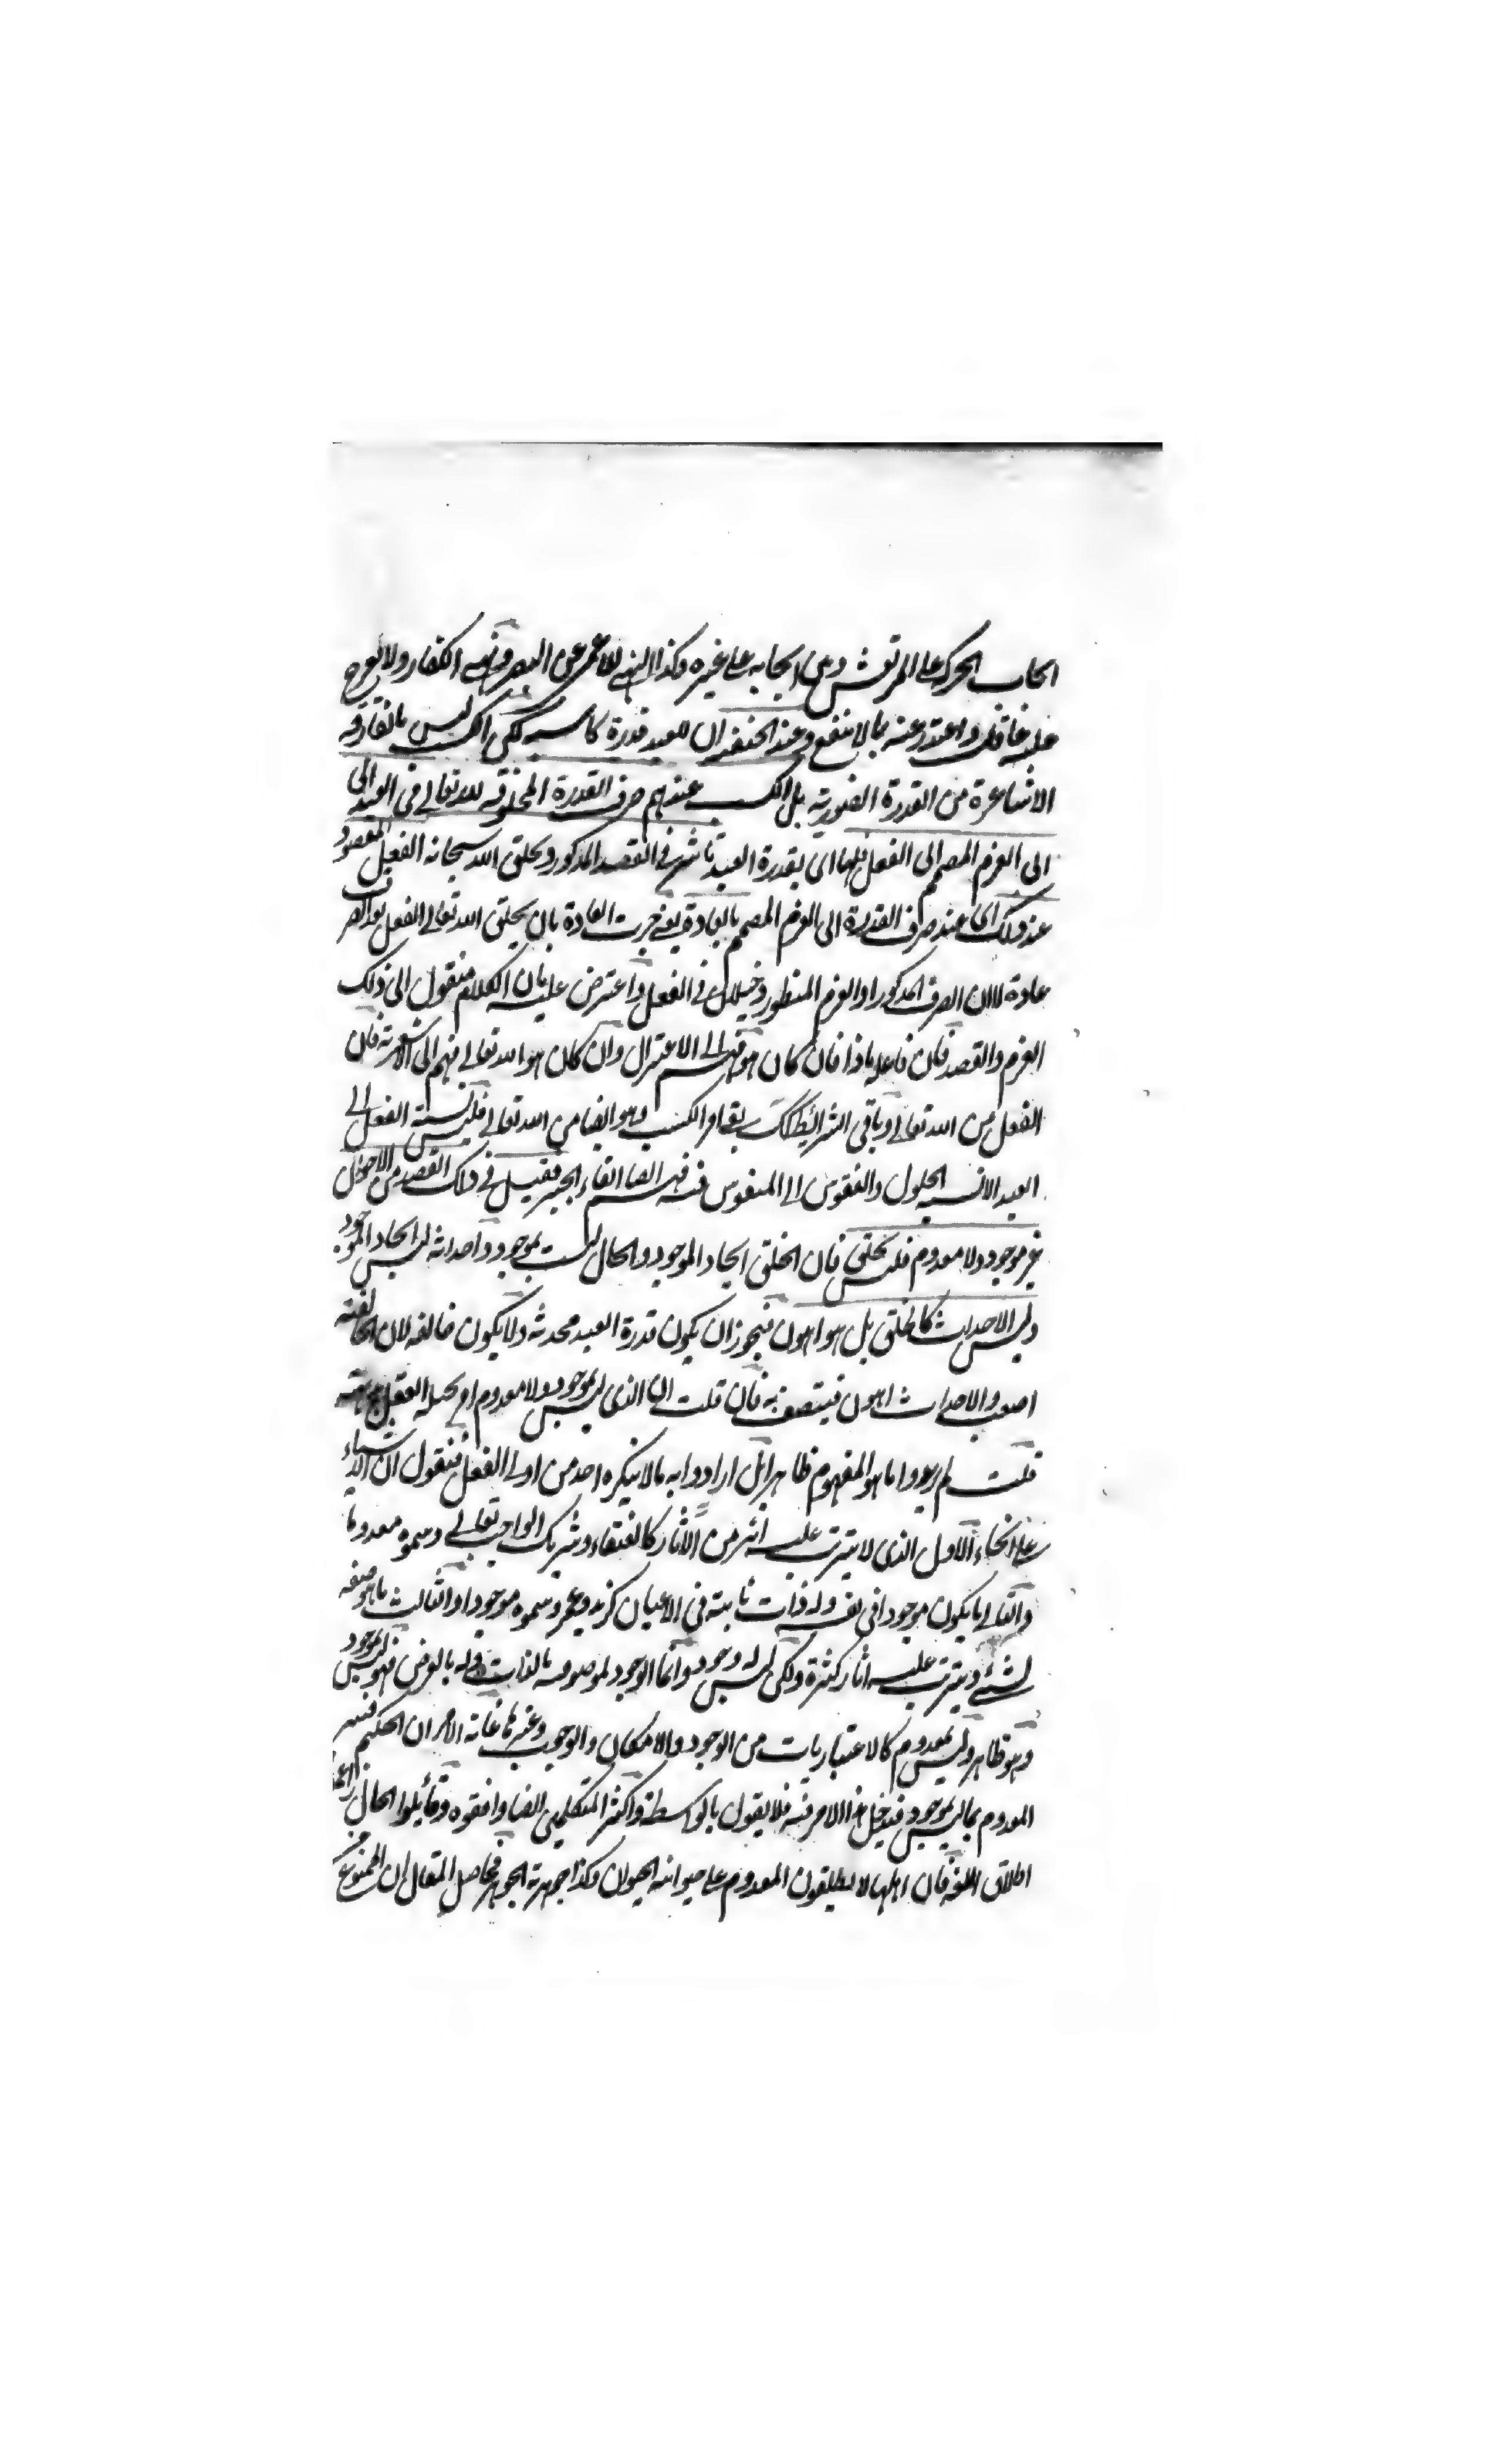 ايجاب الحركة على المرتعش وبين ايجابه على غيره وكذا النهي للاعمى عن البصر ونهي الكفار ولا يعرج
عليه عاقل واعتذر عنه بما لا ينفع وعند الحنفية ان للعبد قدرة كاسبة لكن الكسب ليس بالمقارنة
الاشاعرة من القدرة الضورية بل الكسب عندهم صرف القدرة المخلوقة لله تعالى في العبد الى
الى العزم المصمم الى الفعل فلها اي بقدرة العبد تاثير في القصد المذكور ويخلق الله سبحانه الفعل المقصود
عند ذلك اي عند صرف القدرة الى العزم المصمم بالعادة يعني جرت العادة بان يخلق الله تعالى الفعل بعد الصرف
عادة لا ان الصرف المذكور او العزم المنظور دخيلان في الفعل واعترض عليه بان الكلام منقول الى ذلك
العزم والقصد فان فاعله ماذا فان كان هو فهم الى الاعتزال وان كان هو الله تعالى فهم الى الاشعرية فان
الفعل من الله تعالى وباقي الشرائط كذلك بقي امر الكسب وهو ايضا من الله تعالى فليس نسبة الفعل الى
العبد الا نسبة الحلول والنقوش الى المنقوش فيه فهم ايضا القاء الجبر فقيل في ذلك القصد من الاحوال
غير موجود ولا معدوم فليس بخلق فان الخلق ايجاد الموجود والحال ليست بموجود واحداثه ليس ايجاد الموجود
وليس الاحداث كالخلق بل هو اهون فيجوز ان يكون قدرة العبد محدثة ولا يكون خالقة لان الخالقية
اصعب والاحداث اهون فيتصف به فان قلت ان الذي ليس بموجود ولا معدوم امر يحيله العقل ببداهته
قلت لم يريدوا ما هو المفهوم ظاهرا بل ارادوا به ما لا ينكره احد من اولى الفعل فنقول ان الاشياء
على انحاء الاول الذي لا يترتب عليه اثر من الآثار كالعنقاء وشريك الواجب تعالى وسموه معدوما
والثاني ما يكون موجودا في نفسه وله ذات ثابتة في الاعيان كزيد وعمرو سموه موجودا والثالث ما هو صفة
لشئ ويترتب عليه اثار كثيرة ولكن ليس له وجود وانما الوجود لموصوفه بالذات وله بالعرض فهو ليس بموجود
وهو ظاهر وليس بمعدوم كالاعتباريات من الوجود والامكان والوجوب وغيرها غاية الامر ان الحكيم فسر
المعدوم بما ليس بموجود فيدخل هذا الامر فيه فلا يقول بالواسطة واكثر المتكلمين ايضا وافقوه وقائلوا الحال
اطلاق اللغة فان اهلها لا يطلقون المعدوم على حيوانية الحيوان وكذا جوهرية الجوهر فحاصل المقال ان